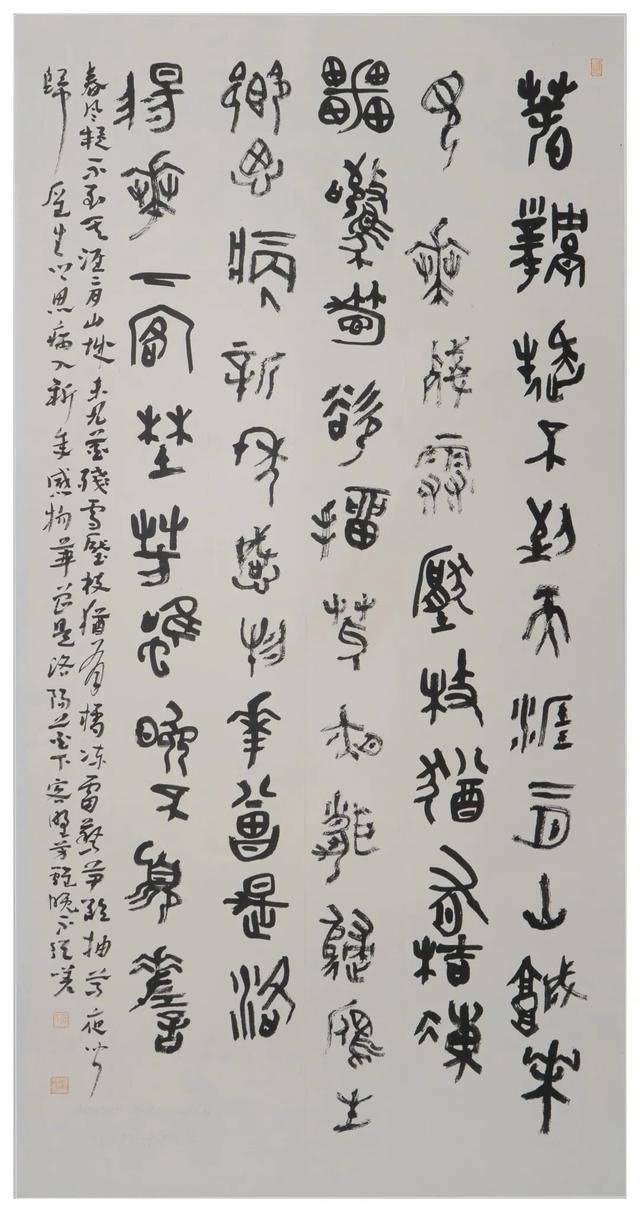 春風疑不到天涯二月山城未
見花殘雪壓枝猶有橘凍
雷驚筍欲抽芽夜聞歸雁生
鄉思病入新年感物華曾是洛
陽花下客野芳雖晚不須嗟
春风疑不到天涯二月山城未見花殘雪壓枝猶有橘冻雷驚笋欲抽芽夜聞
歸雁生鄉思病入新年感物華曾是洛陽花下客野芳雖晚不須嗟